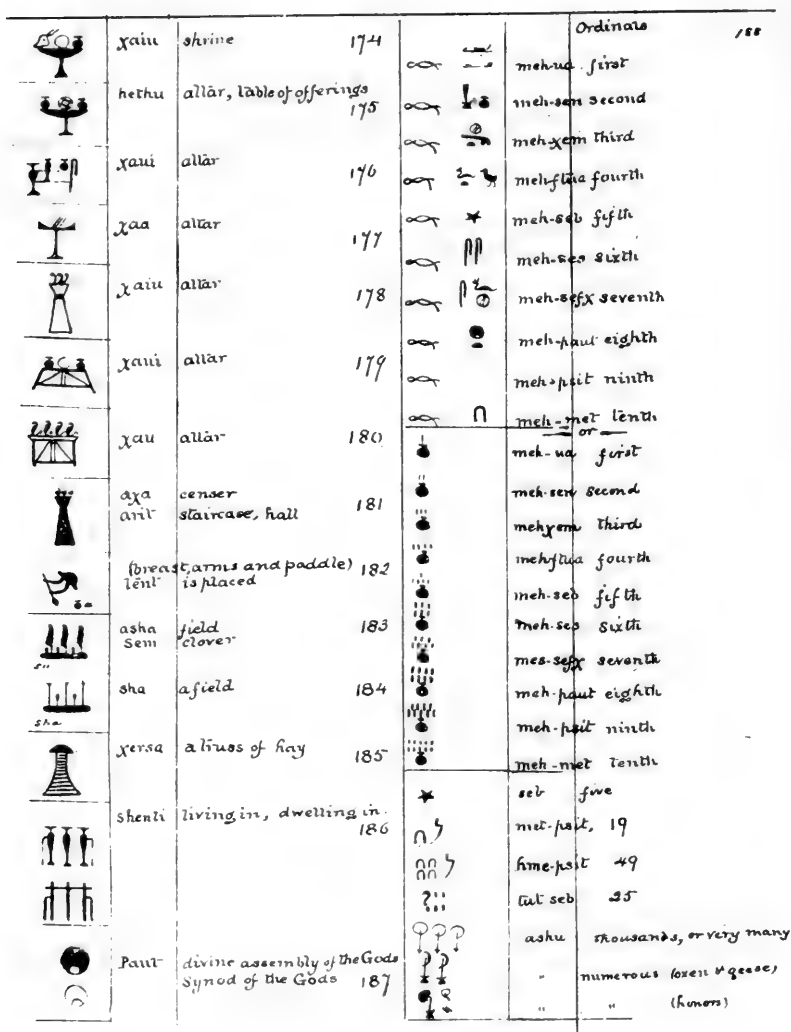 χaiu shrine 174
hethu altar, table of offerings
175
χaui altar 176
χaa altar
177
χaiu altar 178
χaui altar 179
χau altar 180
aχa censer
arit staircase, hall 181
(breast, arms and paddle) 182
tent is placed
asha field 183
sem clover
sha a field 184
sha
χersa a truss of hay 185
shenti living in, dwelling in.
186
Paut divine assembly of the Gods
Synod of the Gods 187
Ordinals 188
meh-ua first
meh-sen second
meh-χem third
meh-ftua fourth
meh-seb fifth
meh-ses sixth
meh-sefχ seventh
meh-paut eighth
meh-psit ninth
meh-met tenth
or
meh-ua first
meh-sen second
meh χem third
meh-ftua fourth
meh-seb fifth
meh-ses sixth
mes-sefχ seventh
meh-paut eighth
meh-psit ninth
meh-met tenth
seb five
met-psit, 19
hme-psit 49
tut seb 25
ashu thousands, or very many
" numerous (oxen & geese)
" " (honors)